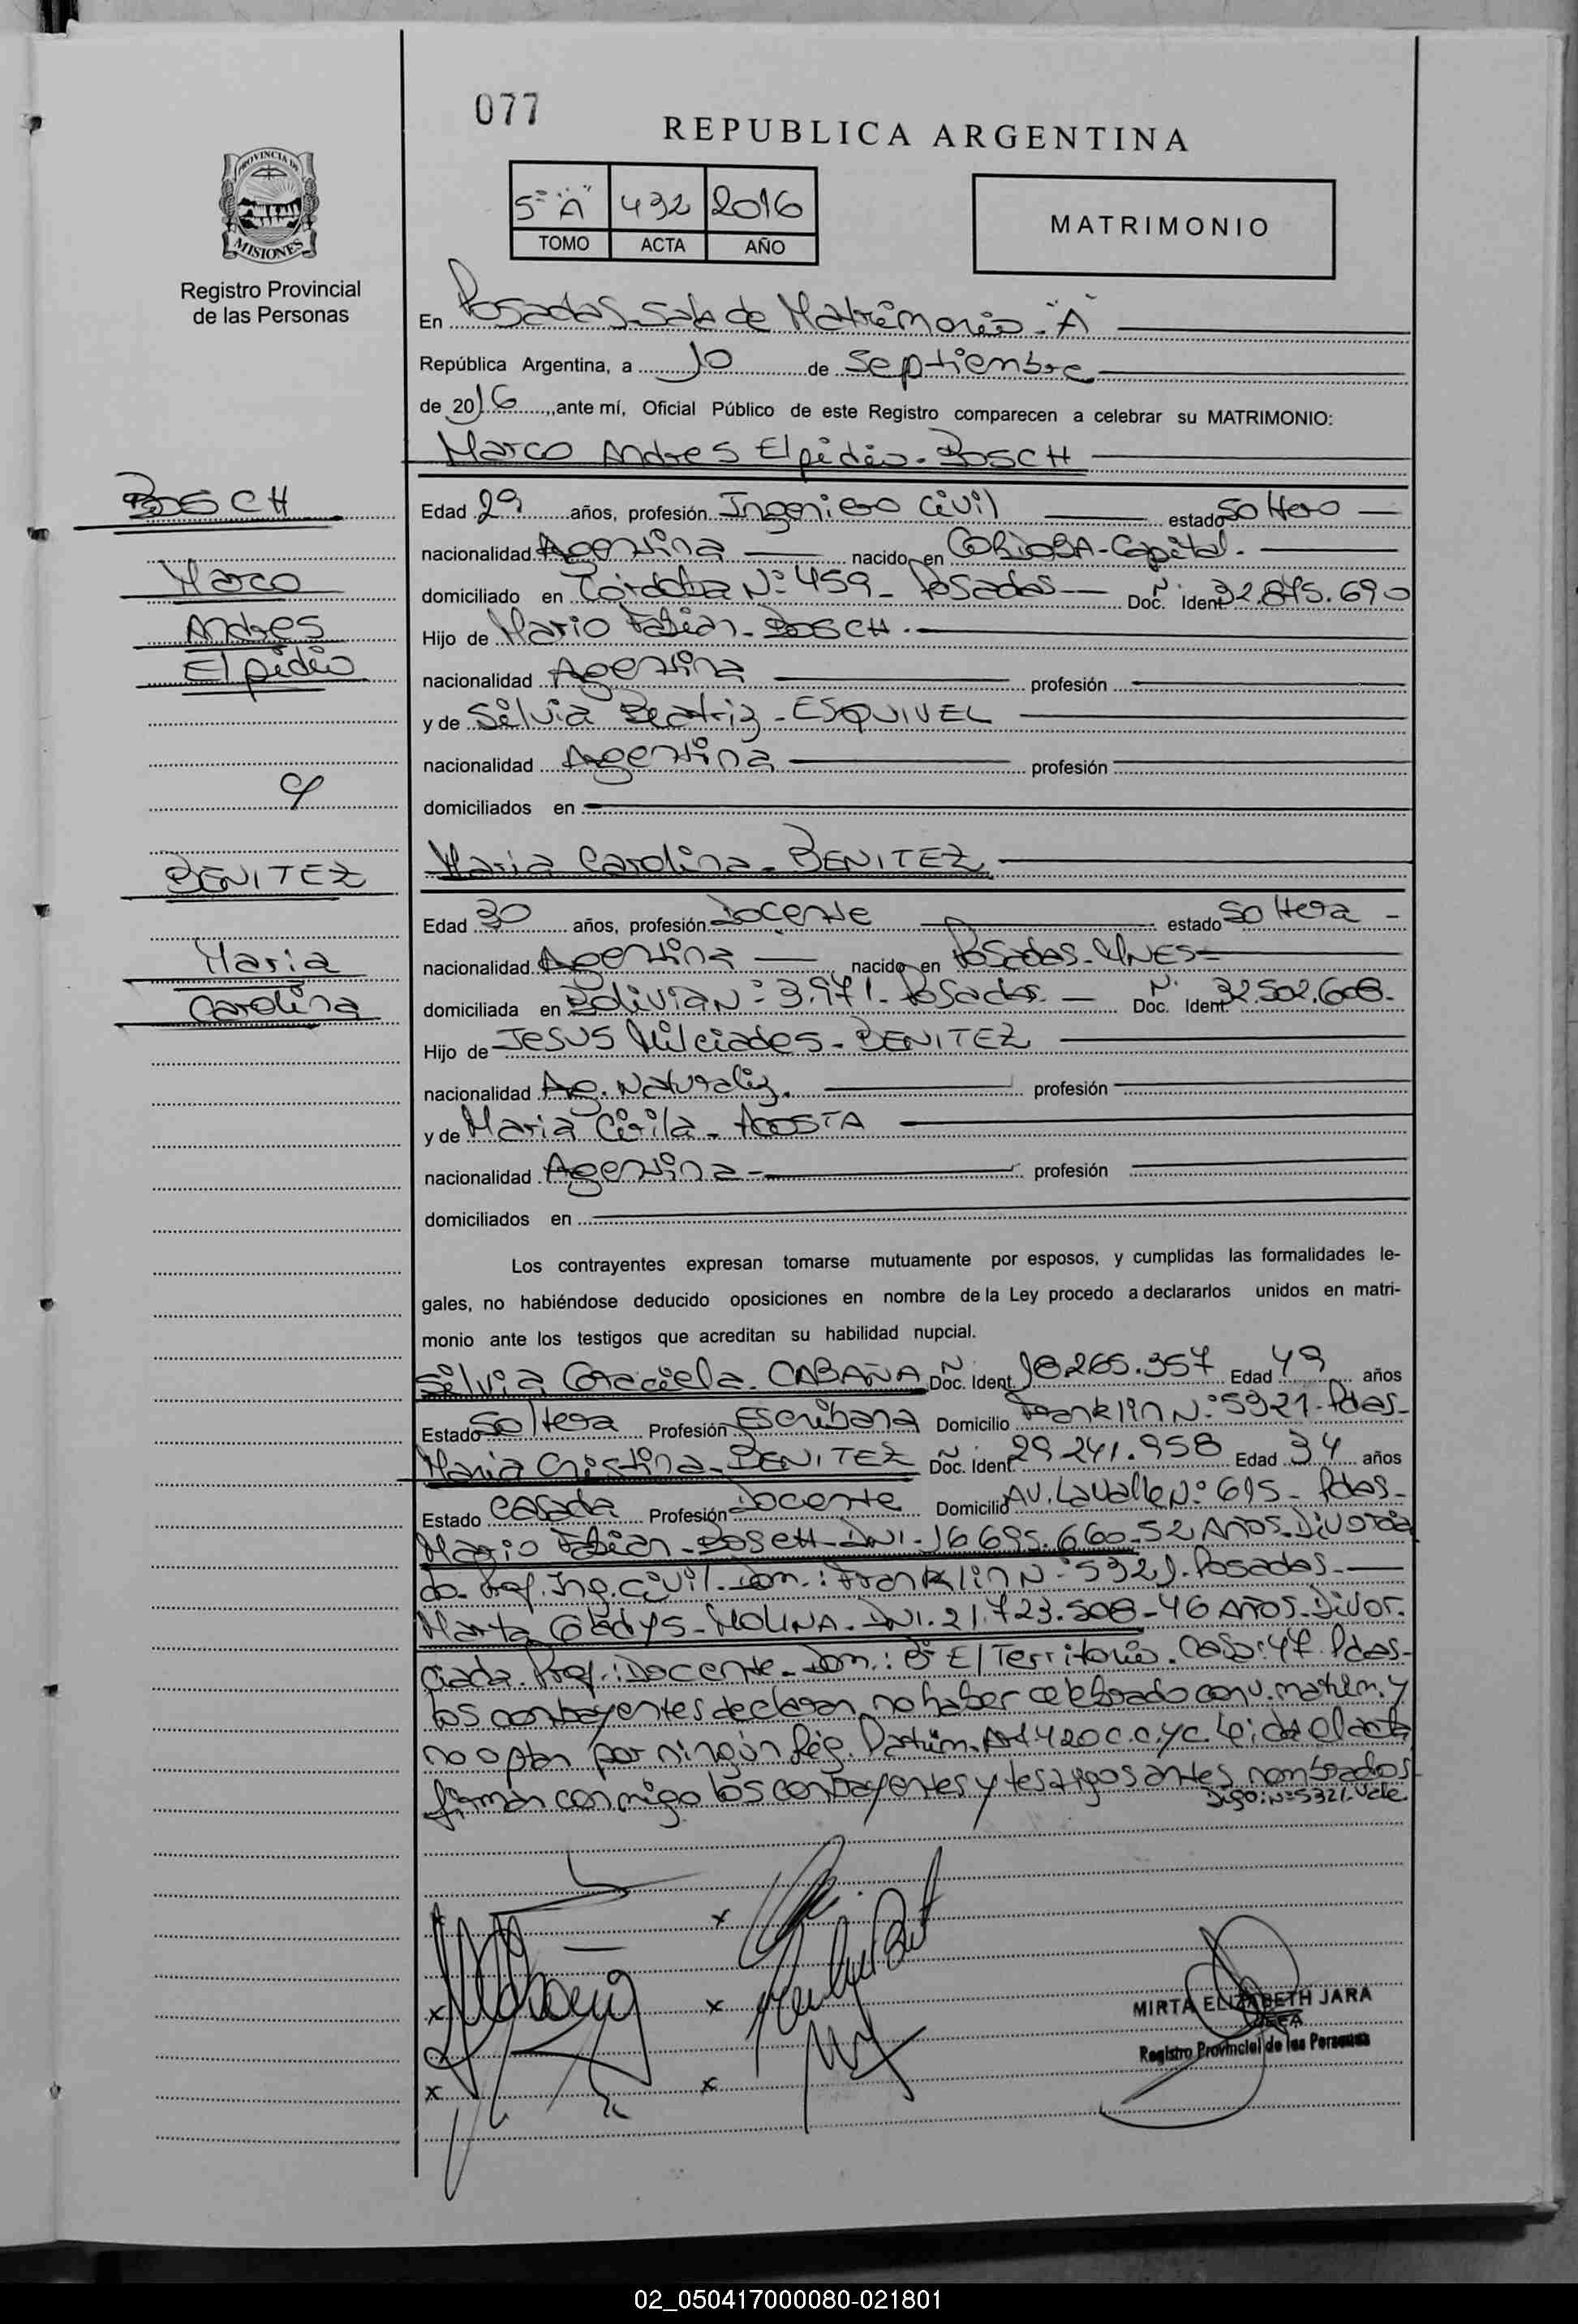 077
REPUBLICA ARGENTINA
5º "A" 432 2016
TOMO ACTA AÑO
MATRIMONIO
PROVINCIA DE
MISIONES
Registro Provincial
de las Personas
En Posadas-Sala de Matrimonio-"A"
República Argentina, a 10 de Septiembre
de 2016, ante mí, Oficial Público de este Registro comparecen a celebrar su MATRIMONIO:
Marco Andres Elpidio-BOSCH
BOSCH
Marco
Andres
Elpidio
Edad 29 años, profesión Ingeniero Civil estado Soltero
nacionalidad Argentina nacido en CORDOBA-Capital.
domiciliado en Córdoba Nº 459- Posadas Doc. Ident. Nº 32.875.690
Hijo de Mario Fabian-BOSCH.
nacionalidad Argentina profesión
y de Silvia Beatriz-ESQUIVEL
nacionalidad Argentina profesión
domiciliados en
María Carolina-BENITEZ
BENITEZ
Maria
Carolina
Edad 30 años, profesión Docente estado Soltera
nacionalidad Argentina nacido en Posadas-MNES
domiciliada en Bolivia Nº 3.971-Posadas- Doc. Ident. Nº 32.502.608.
Hijo de Jesus Milciades-BENITEZ
nacionalidad Arg. Naturaliz. profesión
y de María Cirila-ACOSTA
nacionalidad Argentina- profesión
domiciliados en
Los contrayentes expresan tomarse mutuamente por esposos, y cumplidas las formalidades le-
gales, no habiéndose deducido oposiciones en nombre de la Ley procedo a declararlos unidos en matri-
monio ante los testigos que acreditan su habilidad nupcial.
Silvia Graciela-CABAÑA Doc. Ident. Nº 18.265.357 Edad 49 años
Estado Soltera Profesión Escribana Domicilio Franklin Nº 5921-Pdas-
Maria Cristina-BENITEZ Doc. Ident. Nº 29.241.958 Edad 34 años
Estado Casada Profesión Docente Domicilio AV. Lavalle Nº 695- Pdas-
Mario Fabian-BOSCH-DNI-16.695.660-52 Años-Divorcia
do-Prof. Ing. Civil-Dom.: Franklin Nº 5321-Posadas-
Marta Gladys-MOLINA-DNI. 21.723.508-46 Años-Divor.
ciada. Prof.: Docente-Dom.: Bº El Territorio. Casa: 47. Pdas-
los contrayentes declaran no haber celebrado conv. matrim. y
no optan por ningún Rég. Patrim. Art. 420 C.C. y C. Leída el acta
firman conmigo los contrayentes y testigos antes nombrados
Digo: Nº 5321. Vale.
MIRTA ELIZABETH JARA
JEFA
Registro Provincial de las Personas
02_050417000080-021801